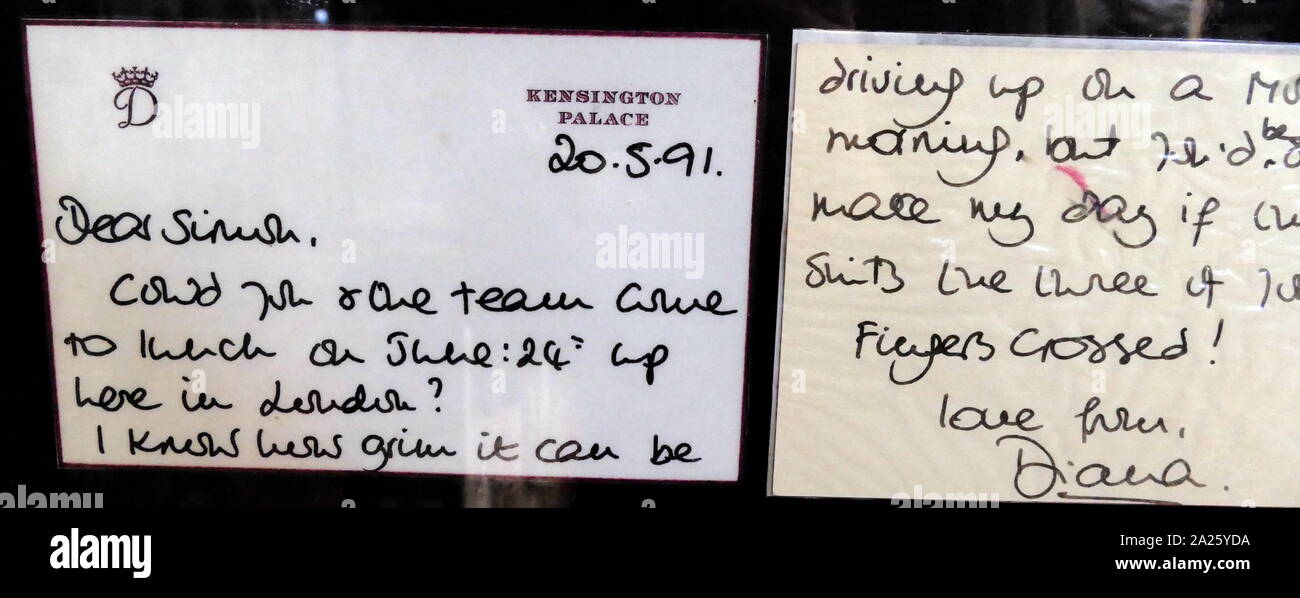 D
KENSINGTON
PALACE
20.5.91.
Dear Simon,
Could you & the team come
to lunch on June:24th up
here in London?
I know how grim it can be
driving up on a Mo
morning, but you'd be
make my day if
suits the three of
Fingers Crossed!
love from,
Diana.
alamy
Image ID: 2A25YDA
www.alamy.com